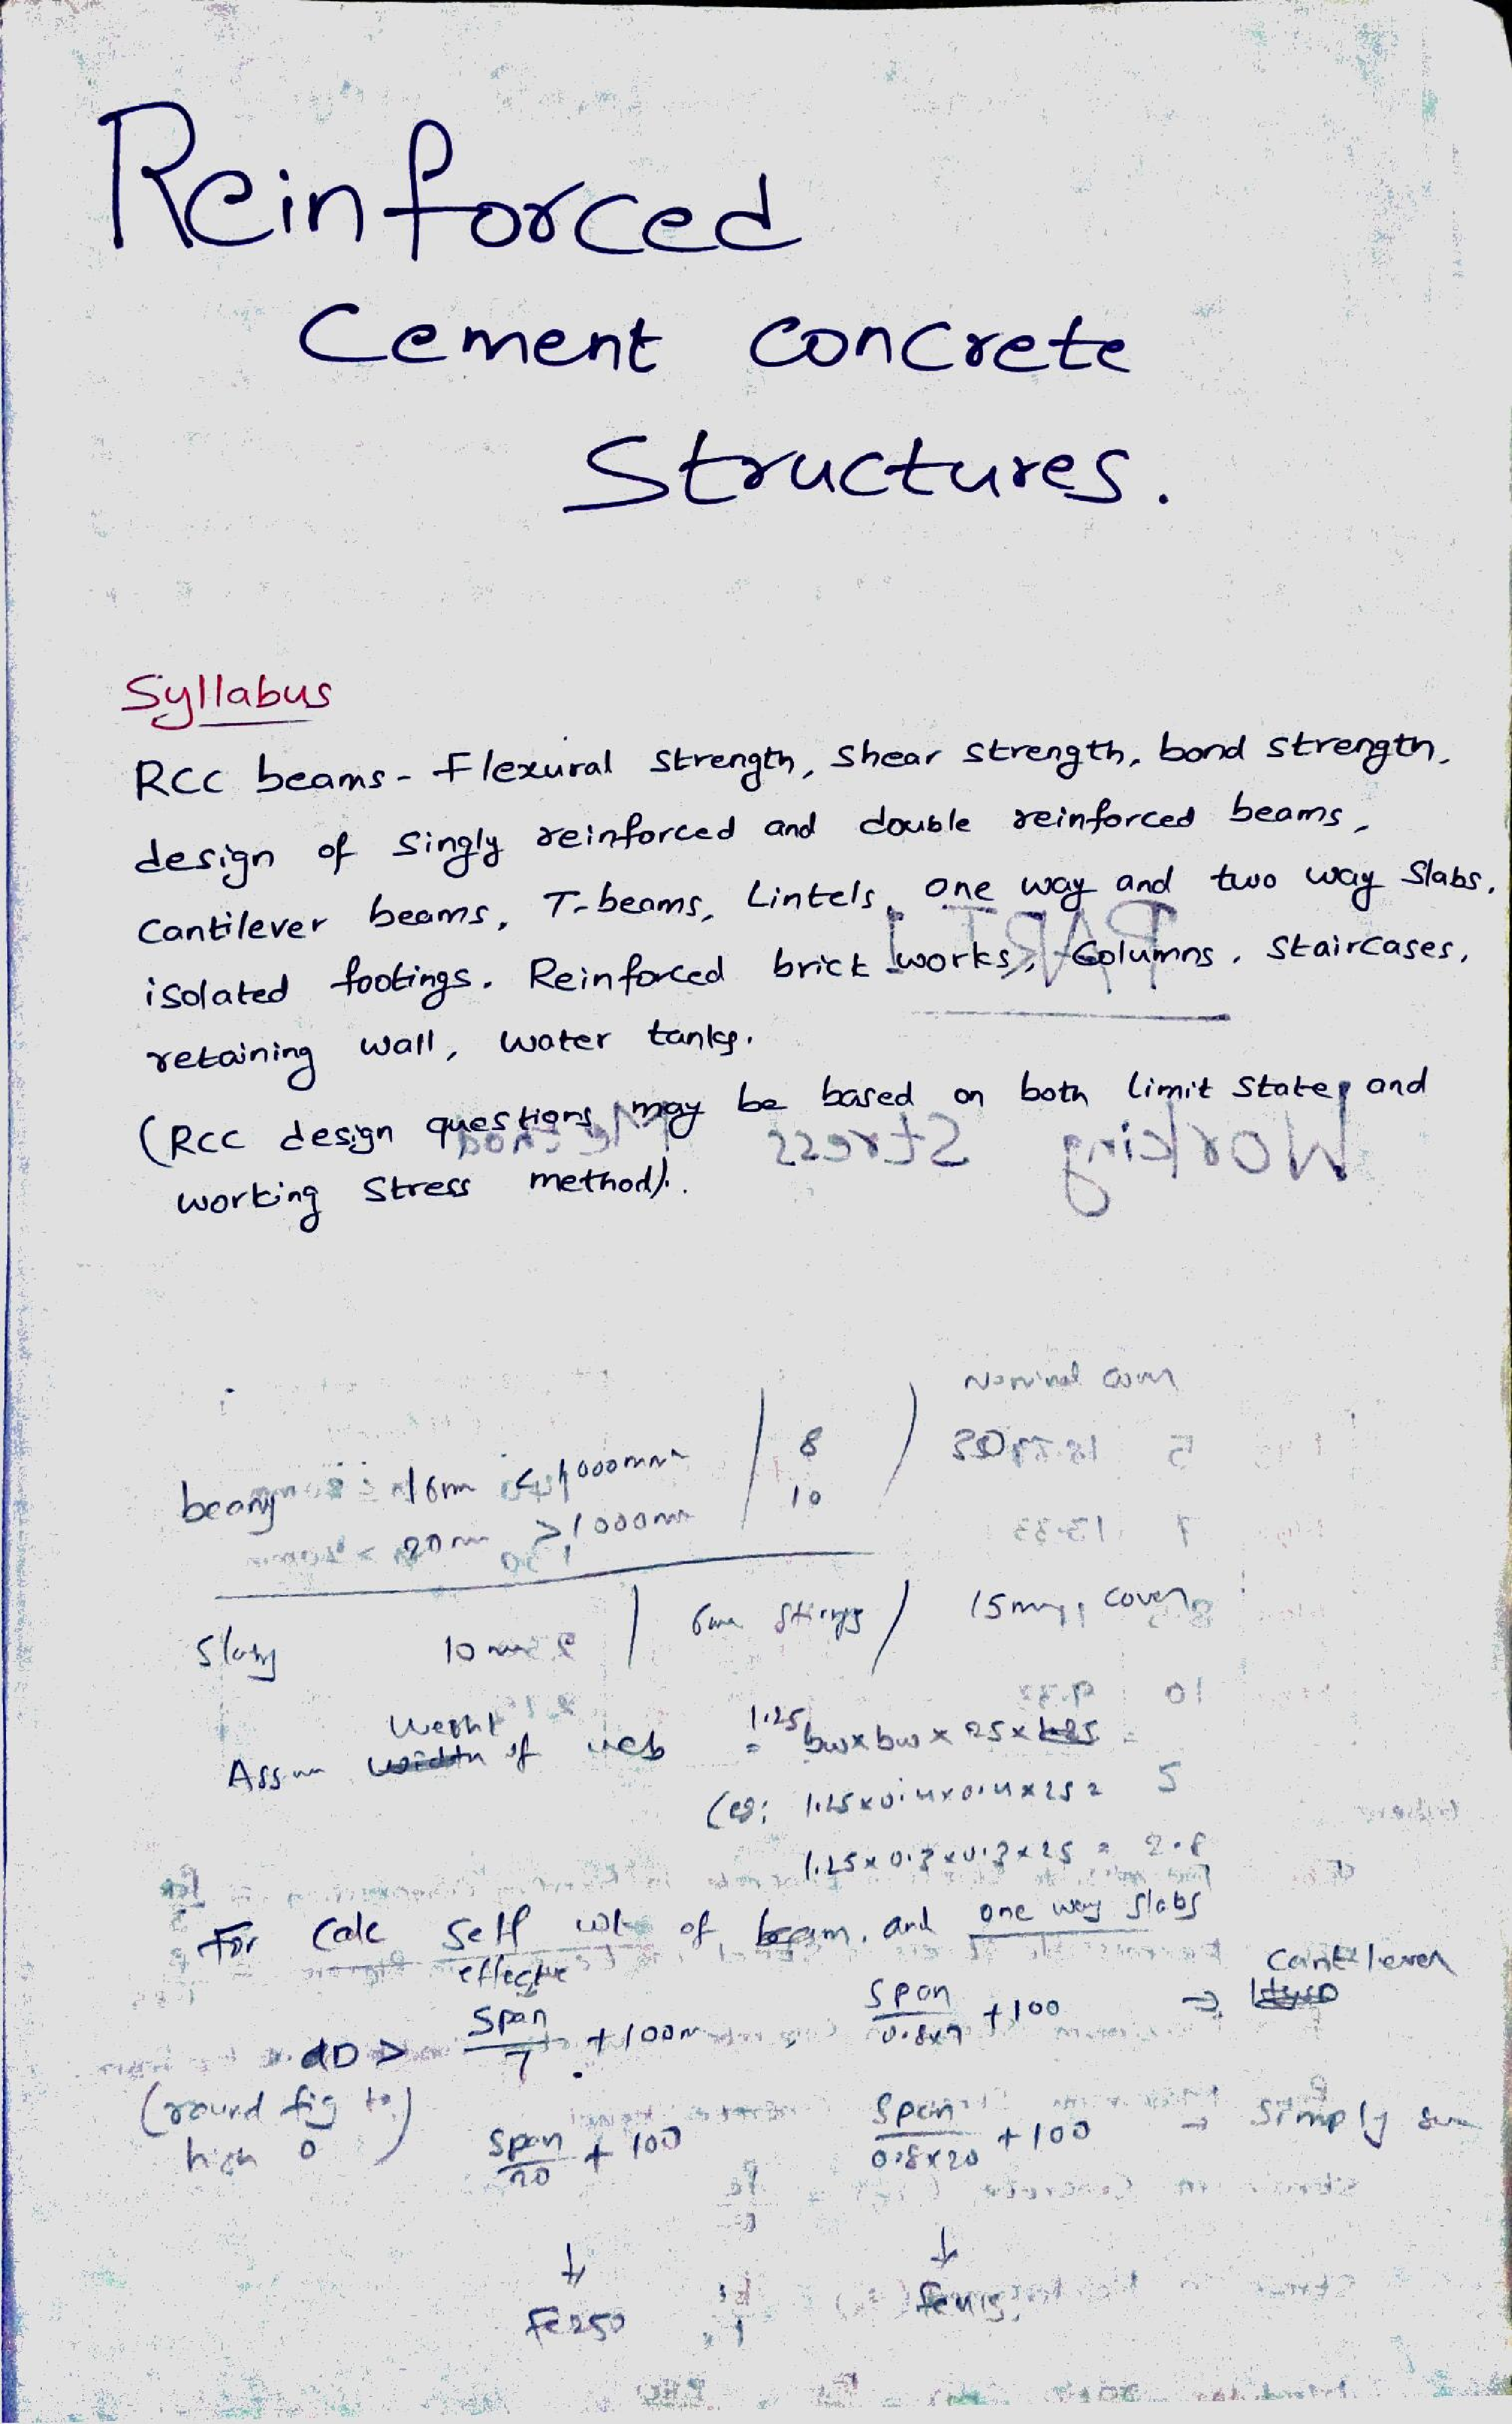 Reinforced
Cement concrete
Structures.
Syllabus
RCC beams - Flexural strength, shear strength, bond strength,
design of singly reinforced and double reinforced beams,
Cantilever beams, T-beams, Lintels, one way and two way slabs,
isolated footings. Reinforced brick works, Columns, Staircases,
retaining wall, water tanks.
(RCC design questions may be based on both limit state and
working stress method).
Nominal
16mm < 1000mm / 8 /
20mm > 1000mm 10
10 mm / 6mm / 15mm cover
Weight
of web = 1.25 bw x bw x 25 x
(eg: 1.25 x 0.4 x 0.4 x 25 = 5
1.25 x 0.3 x 0.3 x 25 = 2.8
For Calc self wt of beam, and one way slabs
effective
D > span/7 + 100mm, span/0.8x7 + 100 → Cantilever
(round fig to
high 0)
span/20 + 100 span/0.8x20 + 100 → Simply
↓ ↓
Fe250 Fe415